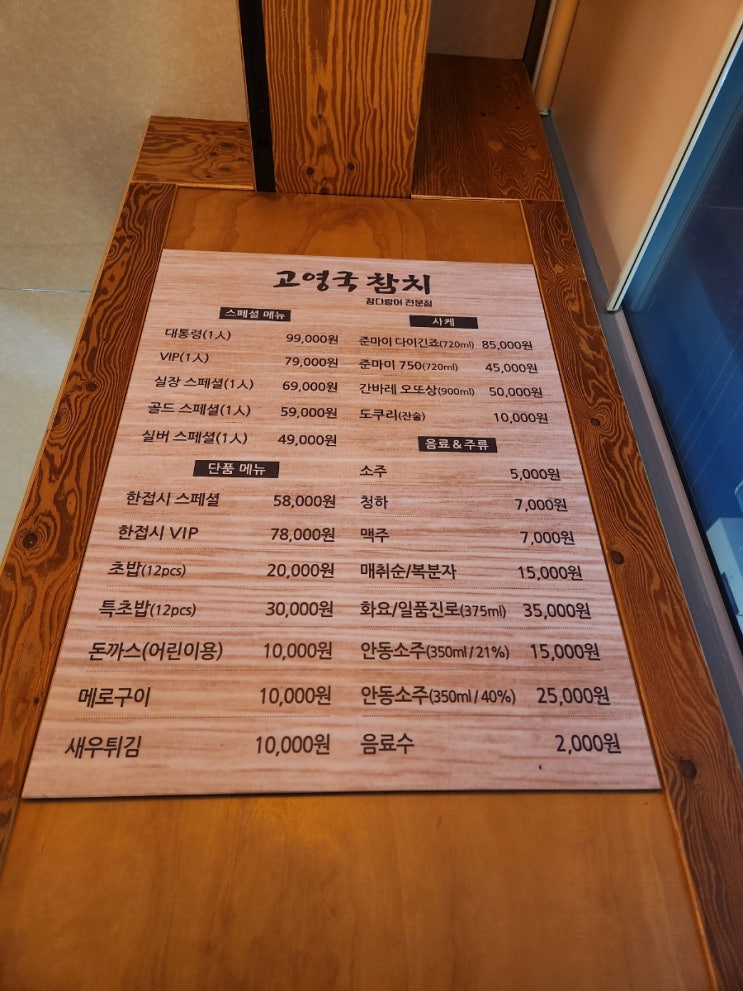 고영국 참치
참다랑어 전문점
스페셜 메뉴
대통령(1人) 99,000원
VIP(1人) 79,000원
실장 스페셜(1人) 69,000원
골드 스페셜(1人) 59,000원
실버 스페셜(1人) 49,000원
단품 메뉴
한접시 스페셜 58,000원
한접시 VIP 78,000원
초밥(12pcs) 20,000원
특초밥(12pcs) 30,000원
돈까스(어린이용) 10,000원
메로구이 10,000원
새우튀김 10,000원
사케
준마이 다이긴죠(720ml) 85,000원
준마이 750(720ml) 45,000원
간바레 오또상(900ml) 50,000원
도쿠리(잔술) 10,000원
음료&주류
소주 5,000원
청하 7,000원
맥주 7,000원
매취순/복분자 15,000원
화요/일품진로(375ml) 35,000원
안동소주(350ml/21%) 15,000원
안동소주(350ml/40%) 25,000원
음료수 2,000원